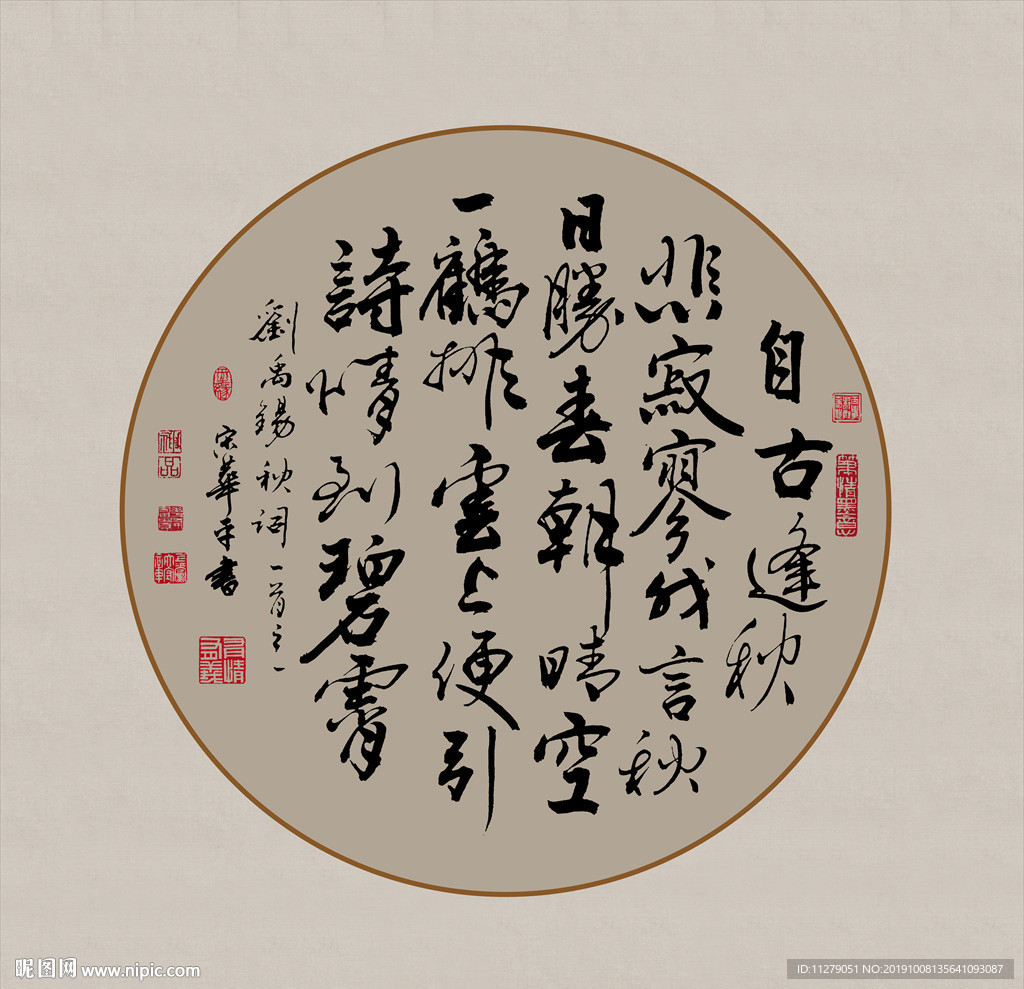 自古逢秋
悲寂寥我言秋
日勝春朝晴空
一鶴排雲上便引
詩情到碧霄
劉禹錫秋詞一首之一
宋華平書
昵图网 www.nipic.com
ID:11279051 NO:20191008135641093087